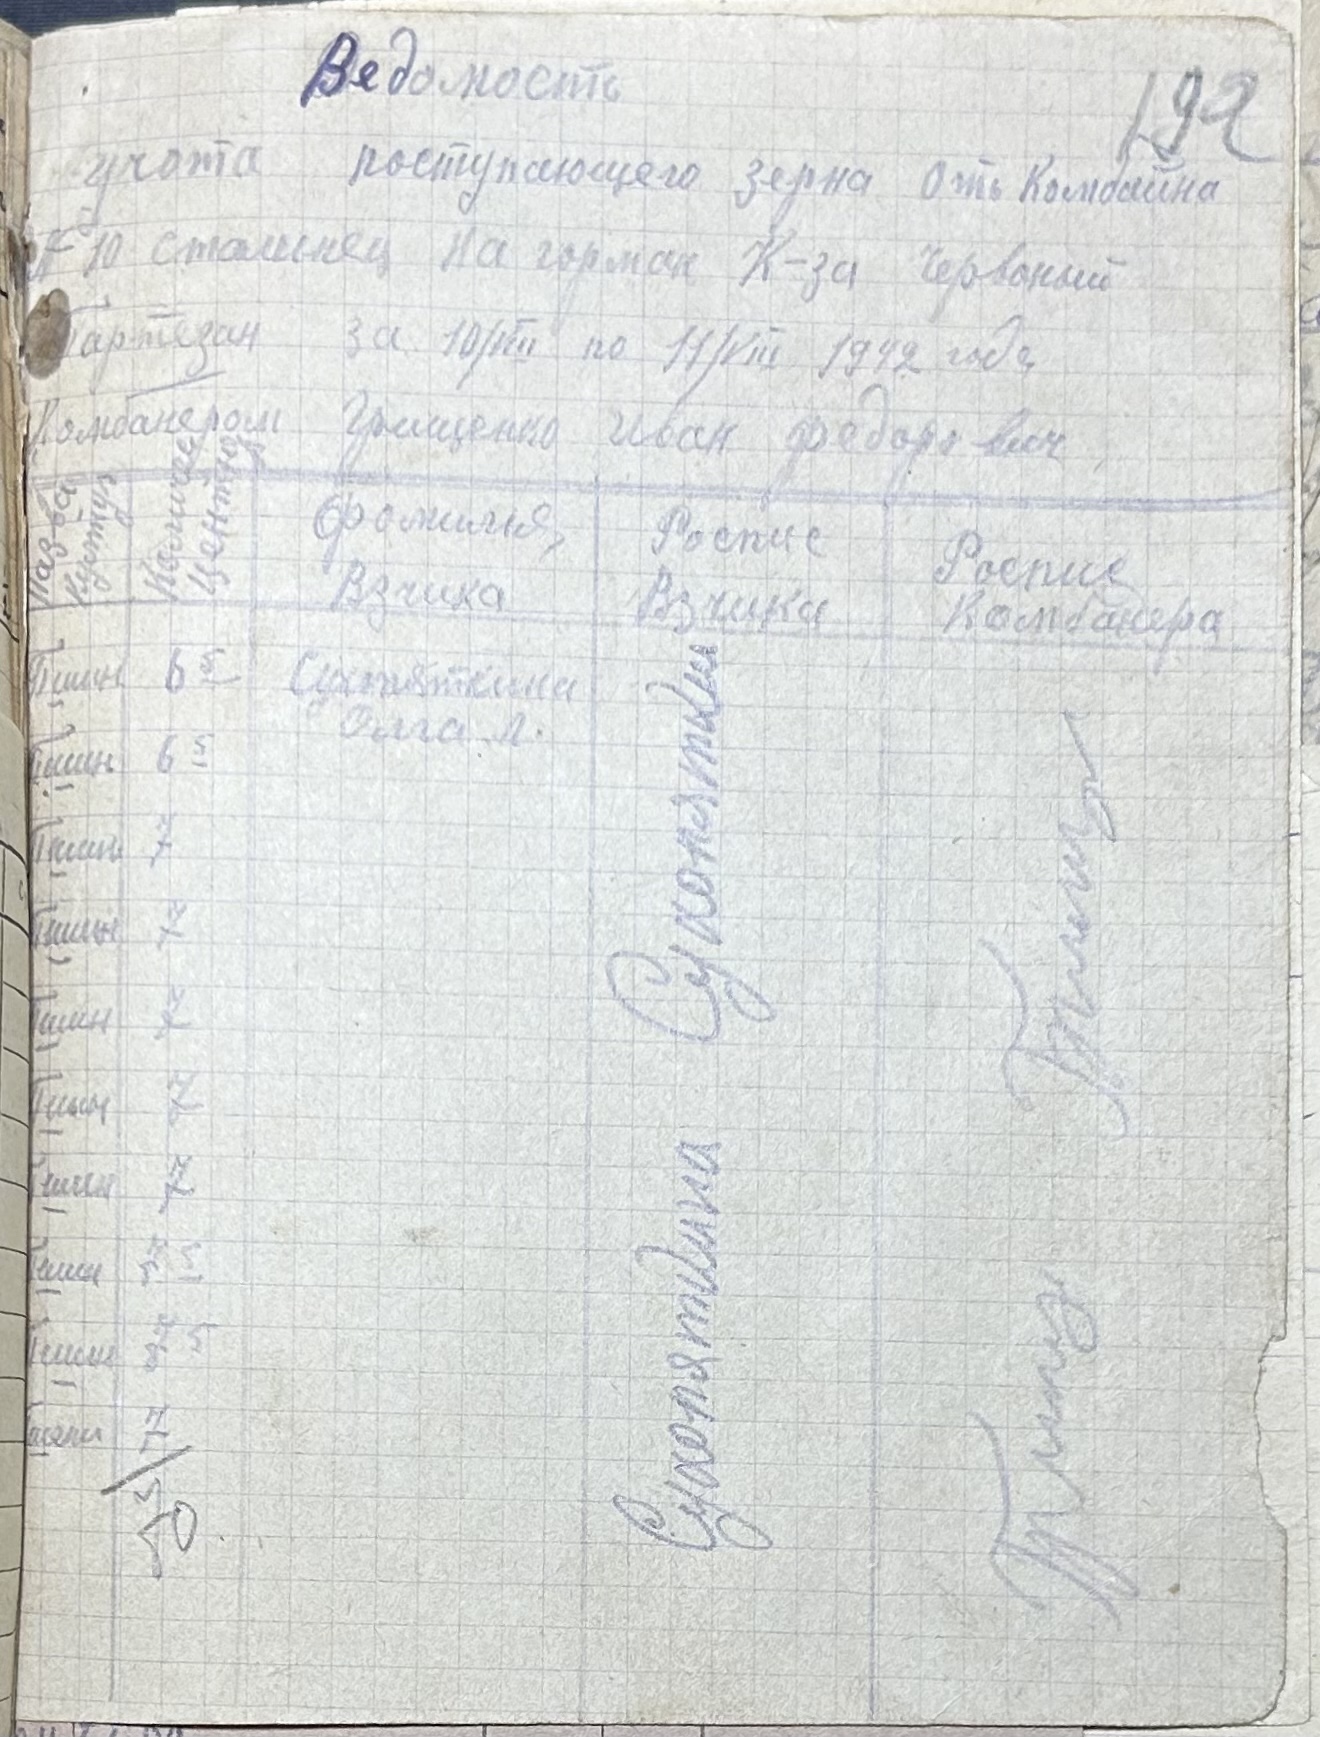 Ведомость
192
учота поступающего зерна Отъ Комбайна
№ 10 сталинец на гармак К-за Червоный
Партезан за 10/VIII по 11/VIII 1942 года
Комбанером Грищенко Иван Федорович
Назва культур Количес Центнер Фамилья, Взчика Роспис Взчика Роспис Комбанера
Пшин 6 5 Сухопяткина
Олга
Пшин 6 5
Пшин 7
Пшин 7
Пшин 7
Пшин 7
Пшин 7
Пшин 7 5
Пшин 7 5
Пшени 7
70
Сухопяткин
Сухопяткина
Грищ
Грищ